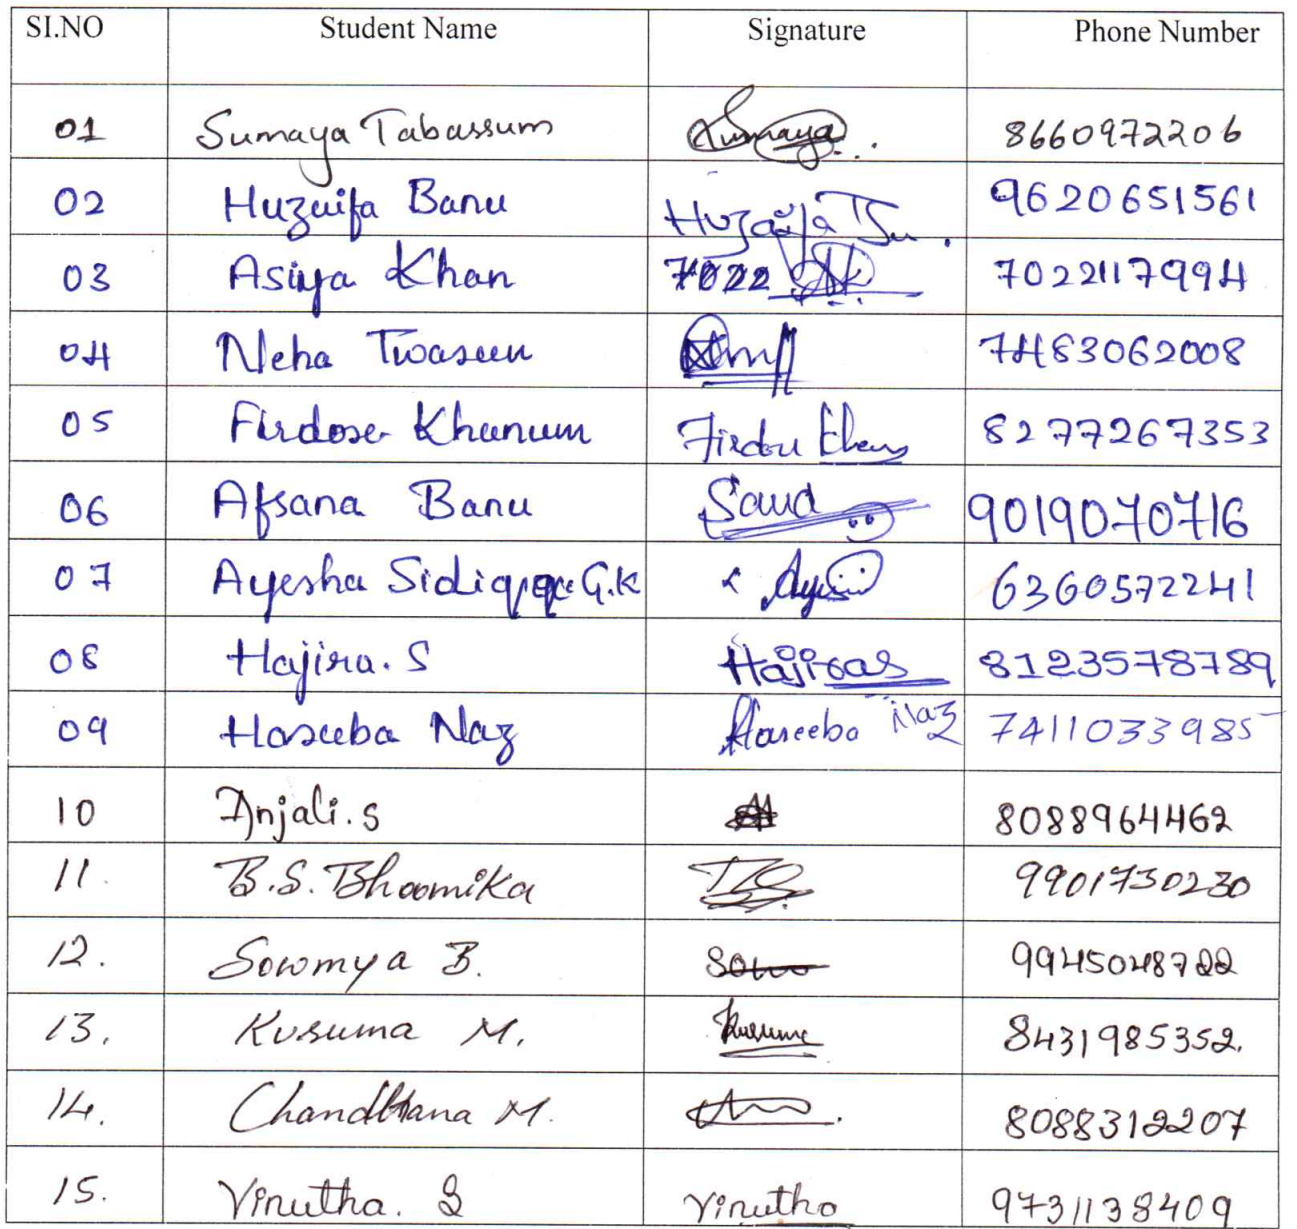 SI.NO Student Name Signature Phone Number
01 Sumaya Tabassum Sumaya 8660972206
02 Huzaifa Banu Huzaifa 9620651561
03 Asiya Khan 7022 7022117994
04 Neha Twaseen 7483062008
05 Firdose Khanum Firdou 8277267353
06 Afsana Banu Sawd 9019070716
07 Ayesha Sidiqqa G.K 6360572241
08 Hajira. S Hajiras 8123578789
09 Haseeba Naz Haseeba Naz 7411033985
10 Anjali.s 8088964462
11. B.S. Bhoomika 9901730230
12. Sowmya B. 9945048722
13. Kusuma M. Kusuma 8431985352.
14. Chandhana M. 8088312207
15. Vinutha. S Vinutha 9731138409